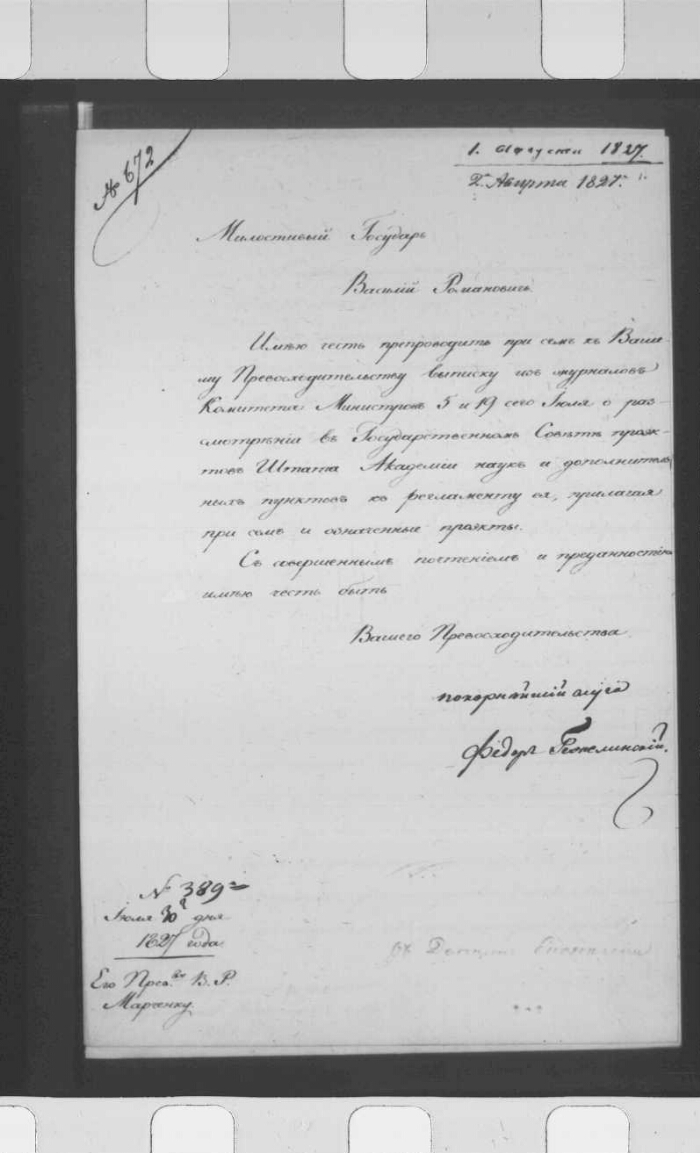 № 672
1. Августа 1827.
2. Августа 1827.
Милостивый Государь
Василій Романовичъ.
Имѣю честь препроводить при семъ къ Ваше-
му Превосходительству выписку изъ журналовъ
Комитета Министровъ 5 и 19 сего Іюля о раз-
смотрѣніи въ Государственномъ Совѣтѣ проэк-
товъ Штата Академіи наукъ и дополнитель-
ныхъ пунктовъ къ регламенту ея, прилагая
при семъ и означенные проэкты.
Съ совершеннымъ почтеніемъ и преданностію
имѣю честь быть
Вашего Превосходительства
покорнѣйшій слуга
Ѳедоръ Гежелинскій.
№ 389
Іюля 30 дня
1827 года
Его Прев.ву В. Р.
Марченку.